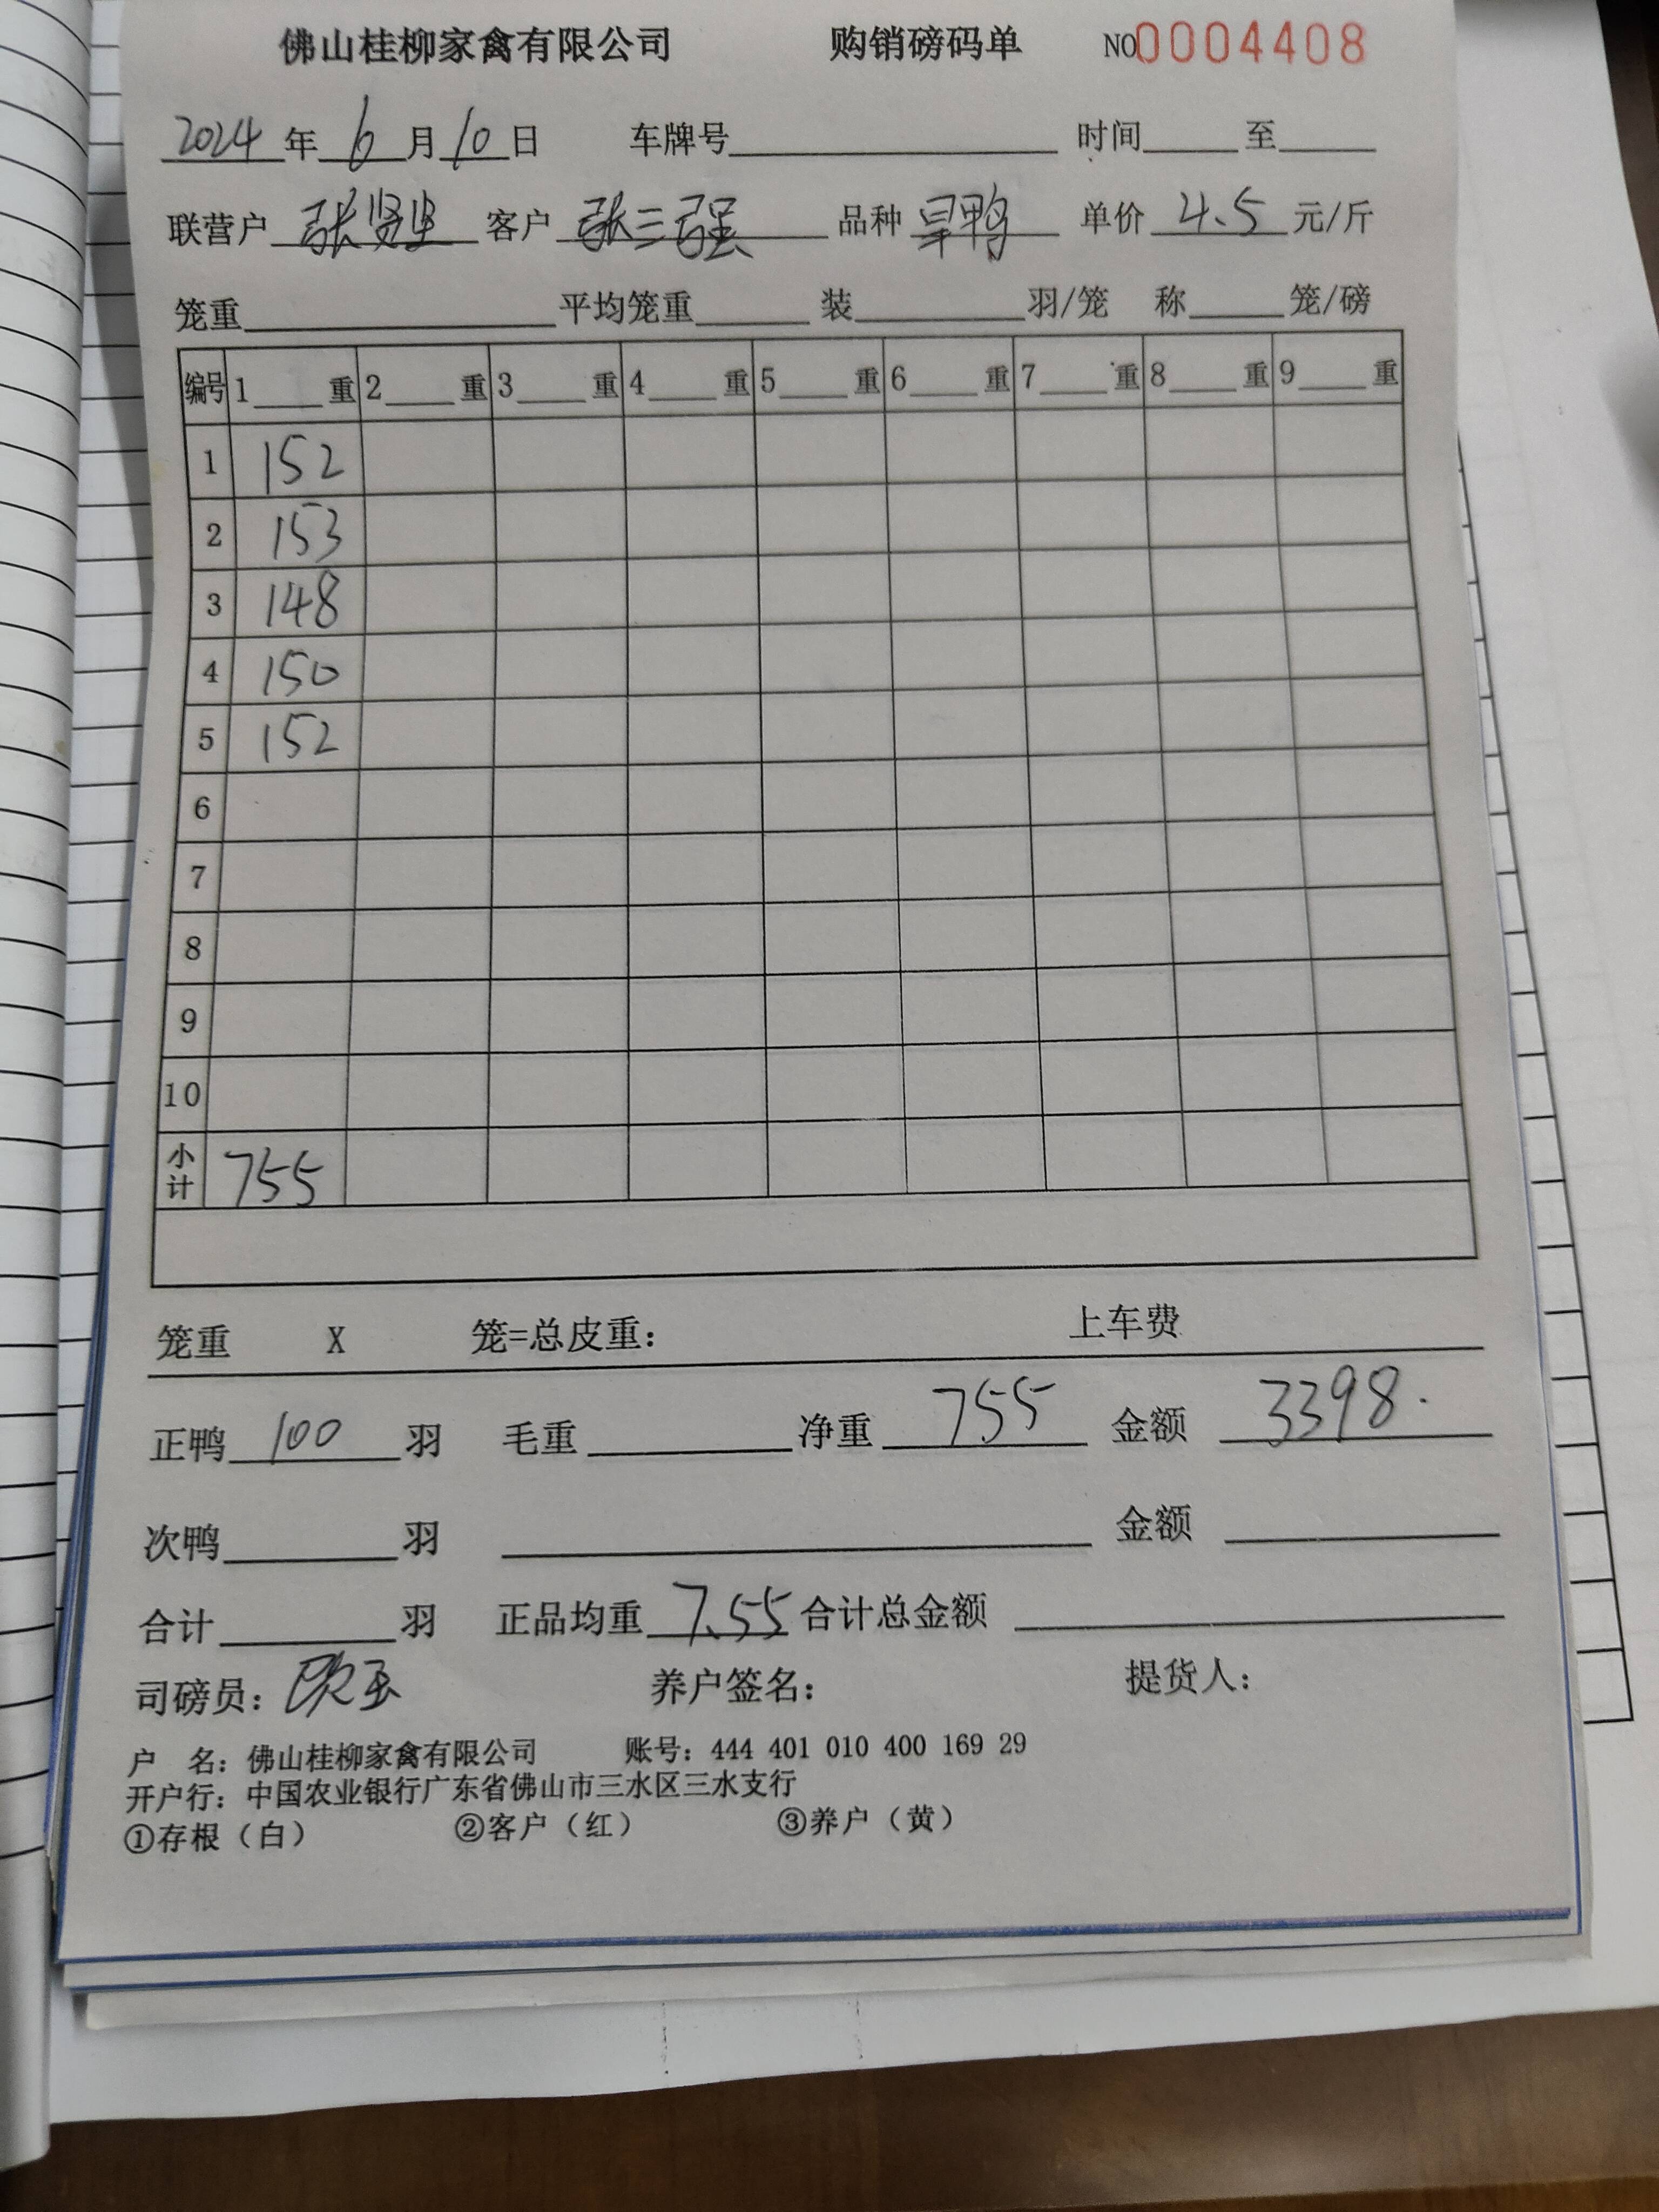 佛山桂柳家禽有限公司 购销磅码单 NO0004408
2024年6月10日 车牌号 时间 至
联营户 张贤 客户 张三强 品种 旱鸭 单价 4.5 元/斤
笼重 平均笼重 装 羽/笼 称 笼/磅
编号 1 重 2 重 3 重 4 重 5 重 6 重 7 重 8 重 9 重
1 152
2 153
3 148
4 150
5 152
6
7
8
9
10
小计 755
笼重 X 笼=总皮重： 上车费
正鸭 100 羽 毛重 净重 755 金额 3398.
次鸭 羽 金额
合计 羽 正品均重 7.55 合计总金额
司磅员： 养户签名： 提货人：
户 名：佛山桂柳家禽有限公司 账号：444 401 010 400 169 29
开户行：中国农业银行广东省佛山市三水区三水支行
①存根（白） ②客户（红） ③养户（黄）